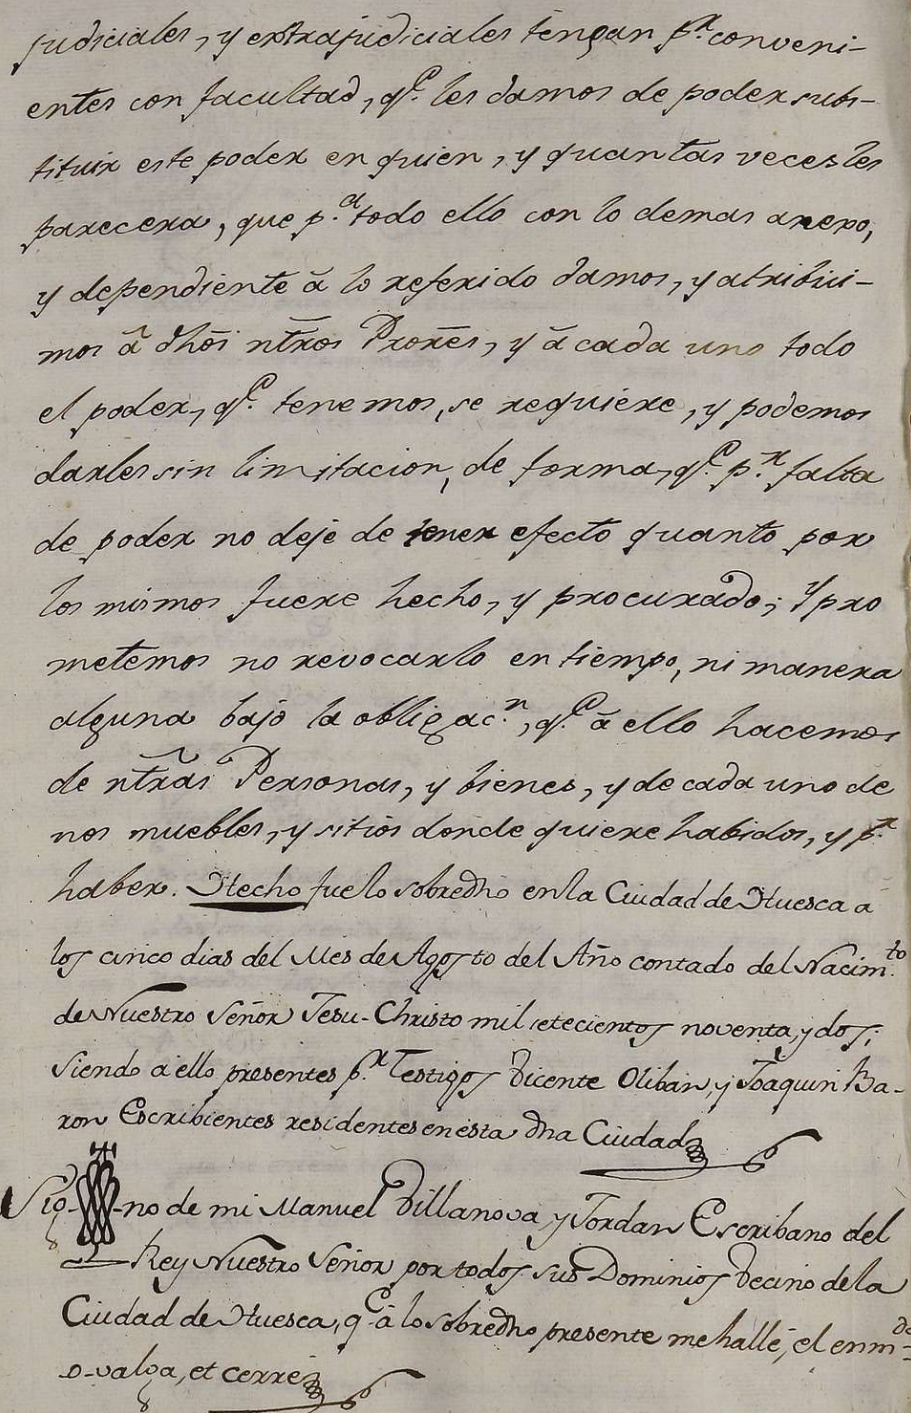 judiciales, y extrajudiciales tengan p.r conveni-
entes con facultad, q.e les damos de poder subs-
tituir este poder en quien, y quantas veces les
parecera, que p.a todo ello con lo demas anexo,
y dependiente â lo referido damos, y atribui-
mos â dhôs ntrôs Prorês, y â cada uno todo
el poder, q.e tenemos, se requiere, y podemos
darles sin limitacion, de forma, q.e p.r falta
de poder no deje de tener efecto quanto por
los mismos fuere hecho, y procurado; Y pro
metemos no revocarlo en tiempo, ni manera
alguna bajo la obligac.n, q.e â ello hacemos
de ntrâs Personas, y bienes, y de cada uno de
nos muebles, y sitios donde quiere habidos, y p.r
haber. Hecho fue lo sobredho en la Ciudad de Huesca a
los cinco dias del Mes de Agosto del Año contado del Nacim.to
de Nuestro Señor Jesu-Christo mil setecientos noventa, y dos;
siendo a ello presentes p.r Testigos Vicente Oliban, y Joaquin Ba-
ron Escribientes residentes en esta dha Ciudad
Sig-no de mi Manuel Villanova y Jordan Escribano del
Rey Nuestro Señor por todos sus Dominios Vecino de la
Ciudad de Huesca, q.e â lo sobredho presente me hallé, el enm.do
-o- valga, et cerré